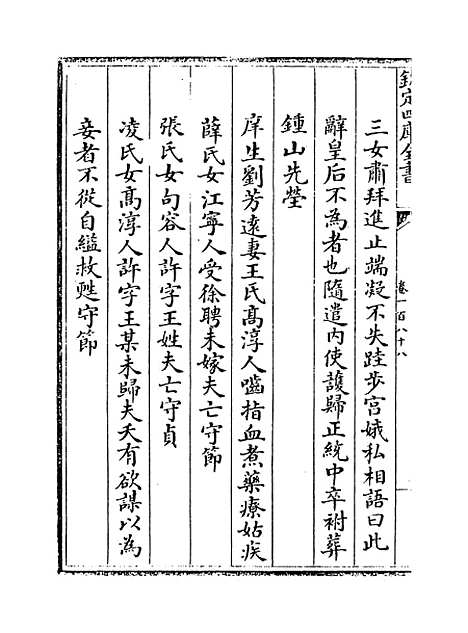 欽定四庫全書
卷一百八十八
三女肅拜進止端凝不失跬步宫娥私相語曰此
辭皇后不為者也隨遣内使護歸正統中卒祔葬
鍾山先塋
庠生劉芳遠妻王氏髙淳人嚙指血煮藥療姑疾
薛氏女江寧人受徐聘未嫁夫亡守節
張氏女句容人許字王姓夫亡守貞
凌氏女髙淳人許字王某未歸夫夭有欲謀以為
妾者不從自縊救甦守節